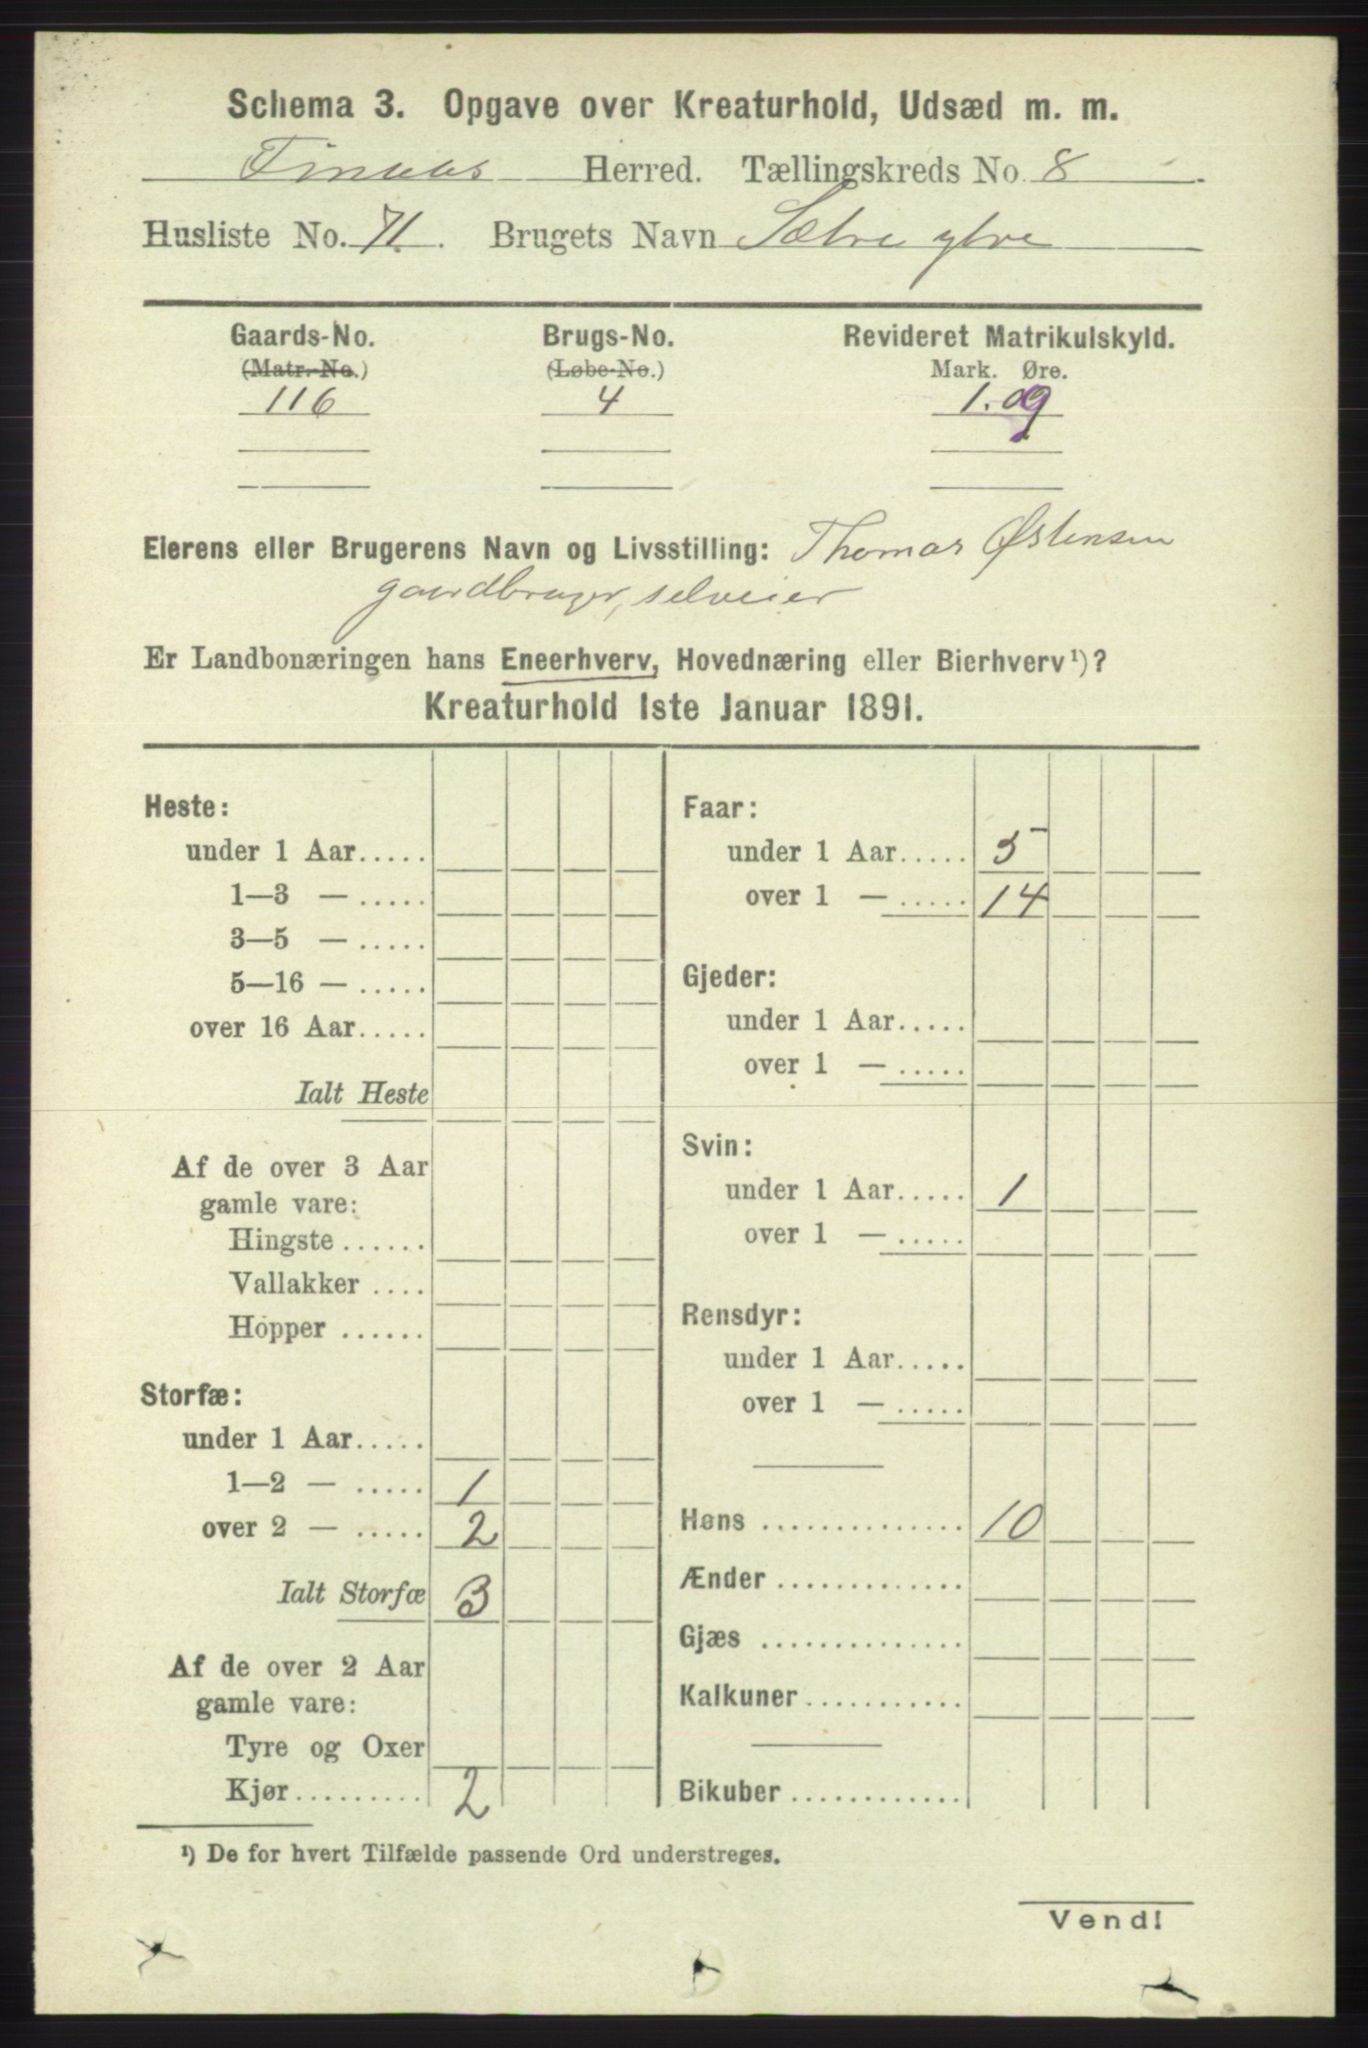 Schema 3. Opgave over Kreaturhold, Udsæd m. m.
Finaas Herred. Tællingskreds No. 8
Husliste No. 71. Brugets Navn Sætre ytre
Gaards-No. Brugs-No. Revideret Matrikulskyld.
(Matr.-No.) (Løbe-No.) Mark. Øre.
116 4 1.09
Eierens eller Brugerens Navn og Livsstilling: Thomas Østensen
gaardbruger, selveier
Er Landbonæringen hans Eneerhverv, Hovednæring eller Bierhverv¹)?
Kreaturhold 1ste Januar 1891.
Heste:
under 1 Aar.....
1—3 — .....
3—5 — .....
5—16 — .....
over 16 Aar.....
Ialt Heste
Af de over 3 Aar
gamle vare:
Hingste ......
Vallakker ....
Hopper ......
Storfæ:
under 1 Aar.....
1—2 — ..... 1
over 2 — ..... 2
Ialt Storfæ 3
Af de over 2 Aar
gamle vare:
Tyre og Oxer
Kjør......... 2
Faar:
under 1 Aar..... 5
over 1 — ..... 14
Gjeder:
under 1 Aar.....
over 1 — .....
Svin:
under 1 Aar..... 1
over 1 — .....
Rensdyr:
under 1 Aar.....
over 1 — .....
Høns .............. 10
Ænder .............
Gjæs ..............
Kalkuner ...........
Bikuber ............
¹) De for hvert Tilfælde passende Ord understreges.
Vend!